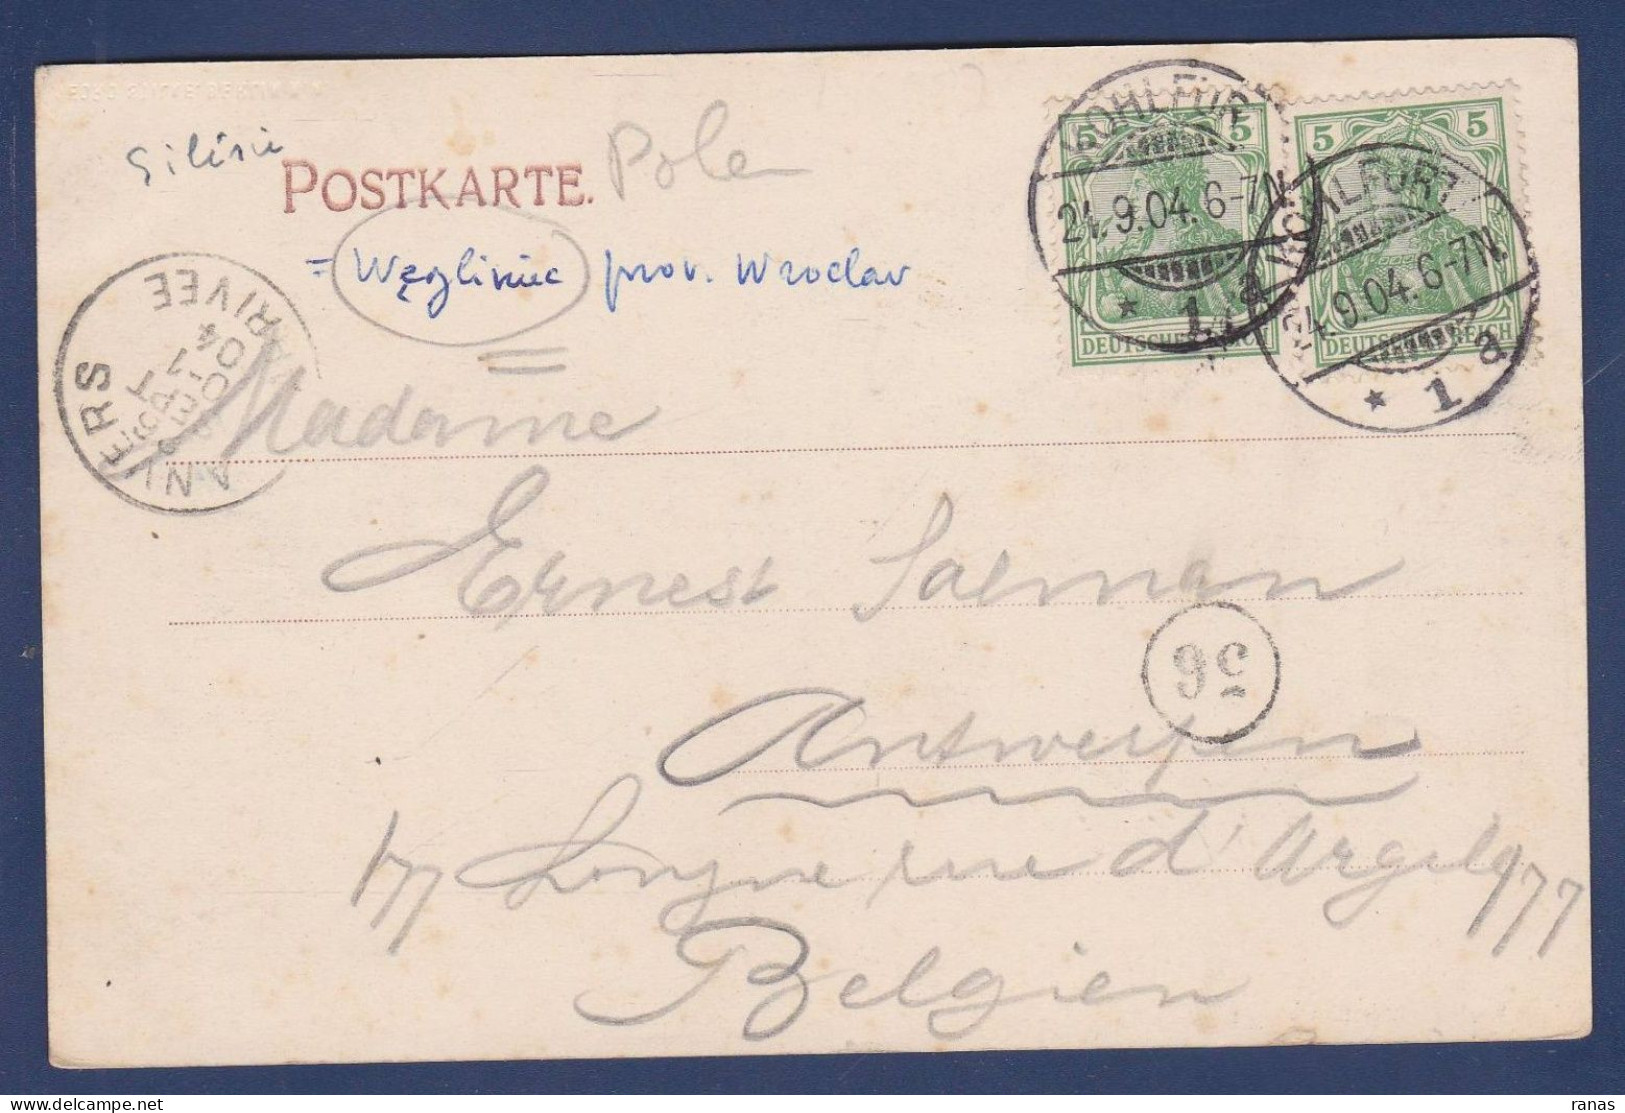 Silisie
POSTKARTE.
Polen
= Węgliniec prov. Wroclav
KOHLFURT
24.9.04.6-7N.
* 1 a
KOHLFURT
24.9.04.6-7N.
* 1 a
5 5
DEUTSCHES REICH
5 5
DEUTSCHES REICH
ANVERS
ARRIVEE
04
Madame
Ernest Salman
9c
Antwerpen
177 Longue rue d'Argile 177
Belgien
ranas